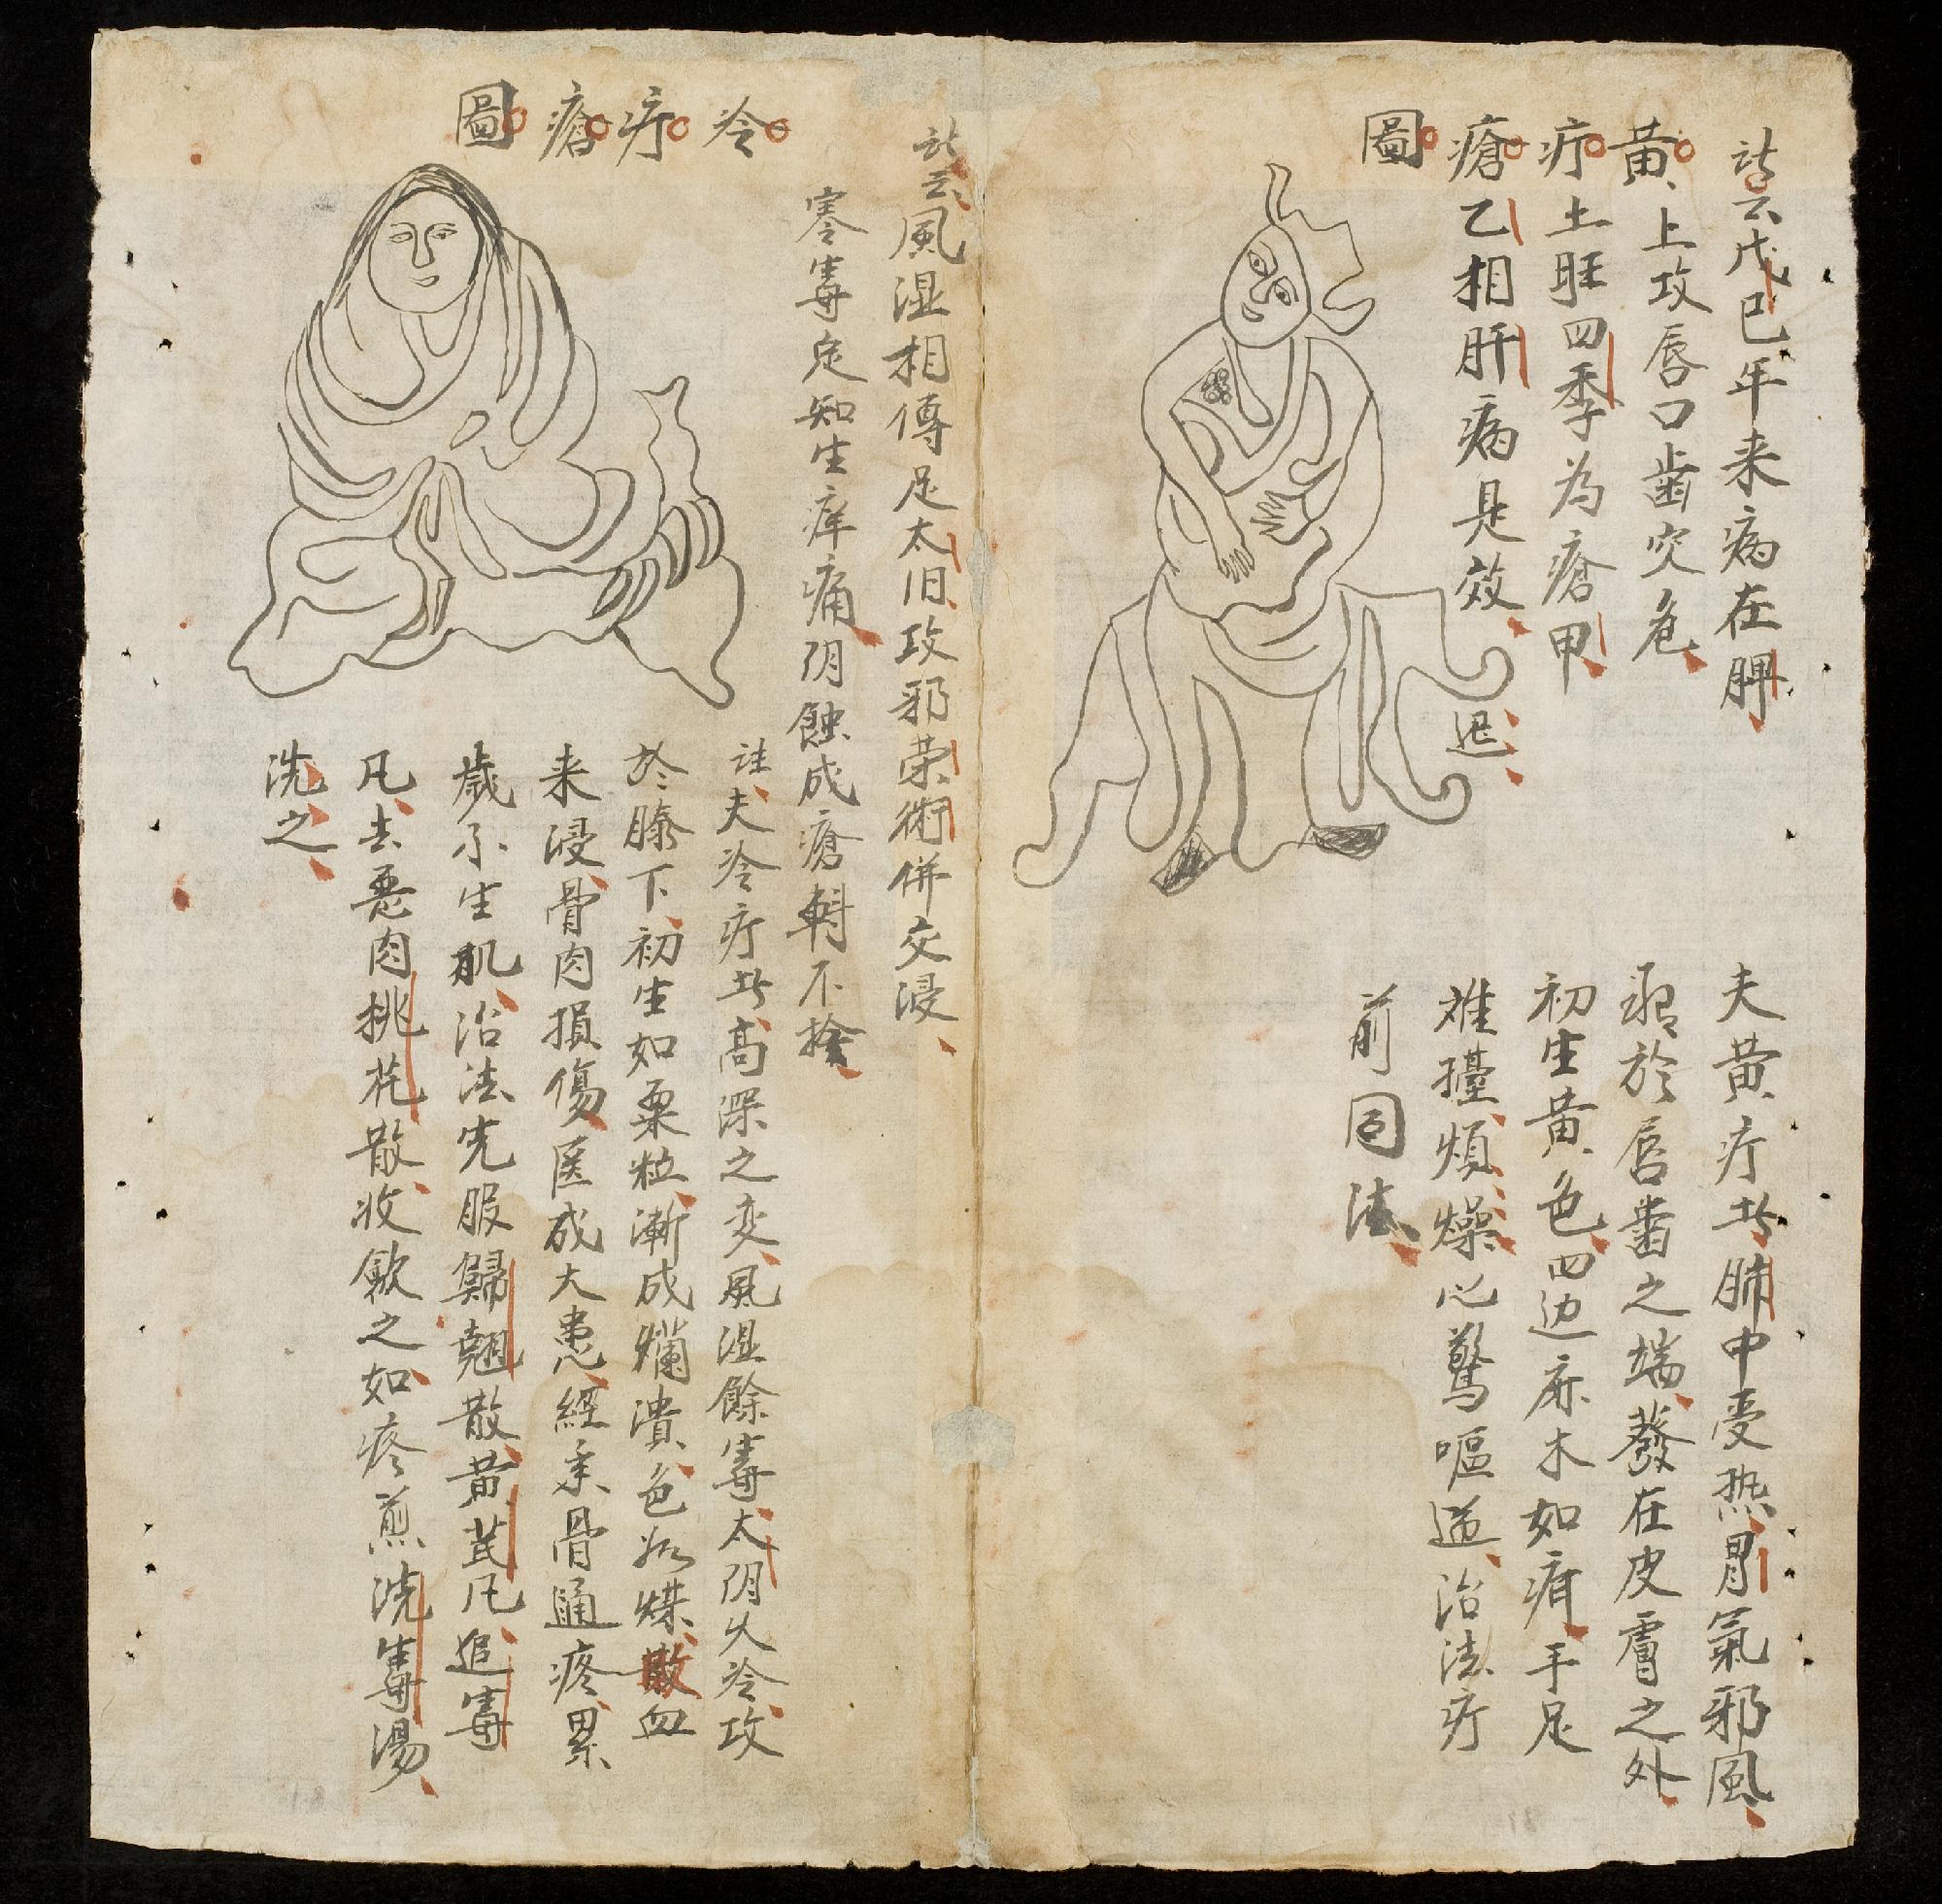 黃疔瘡圖
云戊巳年来病在脾
上攻唇口齒突危
土旺四季為瘡甲
乙相肝病是效
迟
夫黃疔者肺中受热胃氣邪風
於唇齒之端發在皮膚之外
初生黃色四边麻木如疳手足
难擡煩燥心驚嘔逆治法疔
前同法
冷疔瘡圖
云風湿相傳足太旧攻邪荣術併交浸
寒毒定知生痒痛阴蝕成瘡不捨
註夫冷疔者高深之变風湿餘毒太阴久冷攻
於膝下初生如粟粒漸成爛潰色如煤散血
来浸骨肉損傷医成大患經年骨通疼累
歲不生肌治法先服歸翘散黃芪凡追毒
凡去悪肉挑花散收歛之如疼煎洗毒湯
洗之